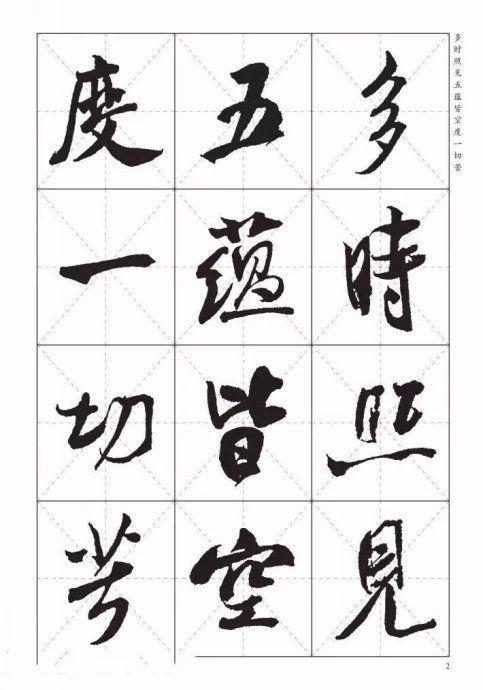 多时照见五蕴皆空度一切苦
多時照見
五蘊皆空
度一切苦
2